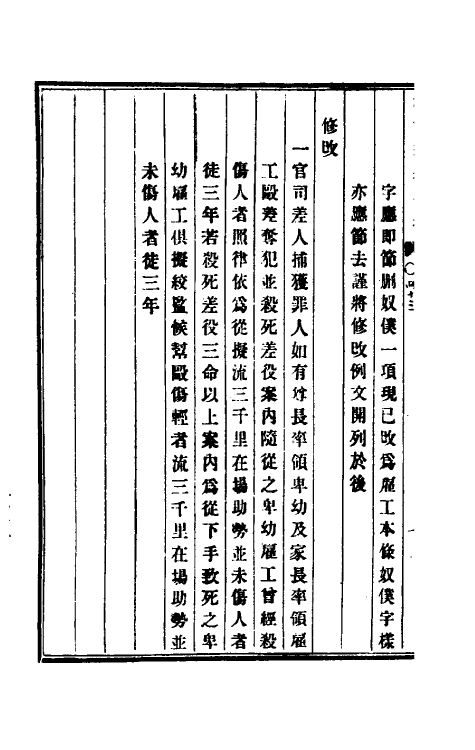 字應即節刪奴僕一項現已改爲雇工本條奴僕字樣
亦應節去謹將修改例文開列於後
修改
一官司差人捕獲罪人如有尊長率領卑幼及家長率領雇
工毆差奪犯並殺死差役案內隨從之卑幼雇工曾經殺
傷人者照律依爲從擬流三千里在場助勢並未傷人者
徒三年若殺死差役三命以上案內爲從下手致死之卑
幼雇工俱擬絞監候幫毆傷輕者流三千里在場助勢並
未傷人者徒三年